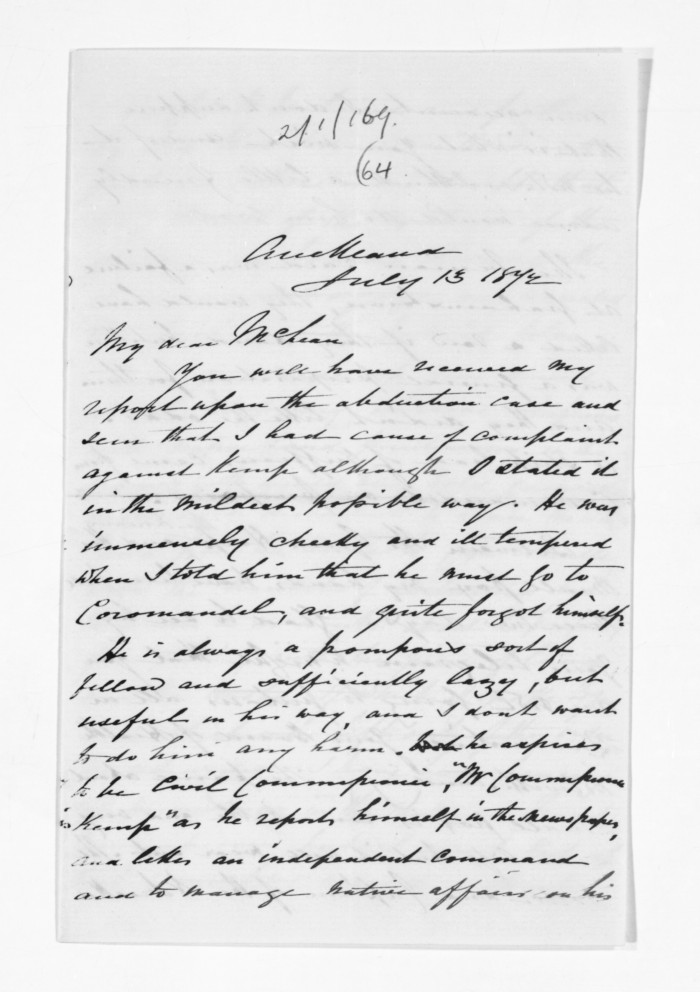 2/1/169.
(64.
Auckland
July 13 1872
My dear McLean
You will have received my
report upon the abduction case and
seen that I had cause of complaint
against Kemp although I stated it
in the mildest possible way. He was
immensely cheeky and ill tempered
when I told him that he must go to
Coromandel, and quite forgot himself.
He is always a pompous sort of
fellow and sufficiently lazy, but
useful in his way, and I dont want
to do him any harm. he aspires
to be Civil Commissioner, "Mr Commissioner
Kemp" as he reports himself in the newspaper,
and likes an independent command
and to manage native affairs on his